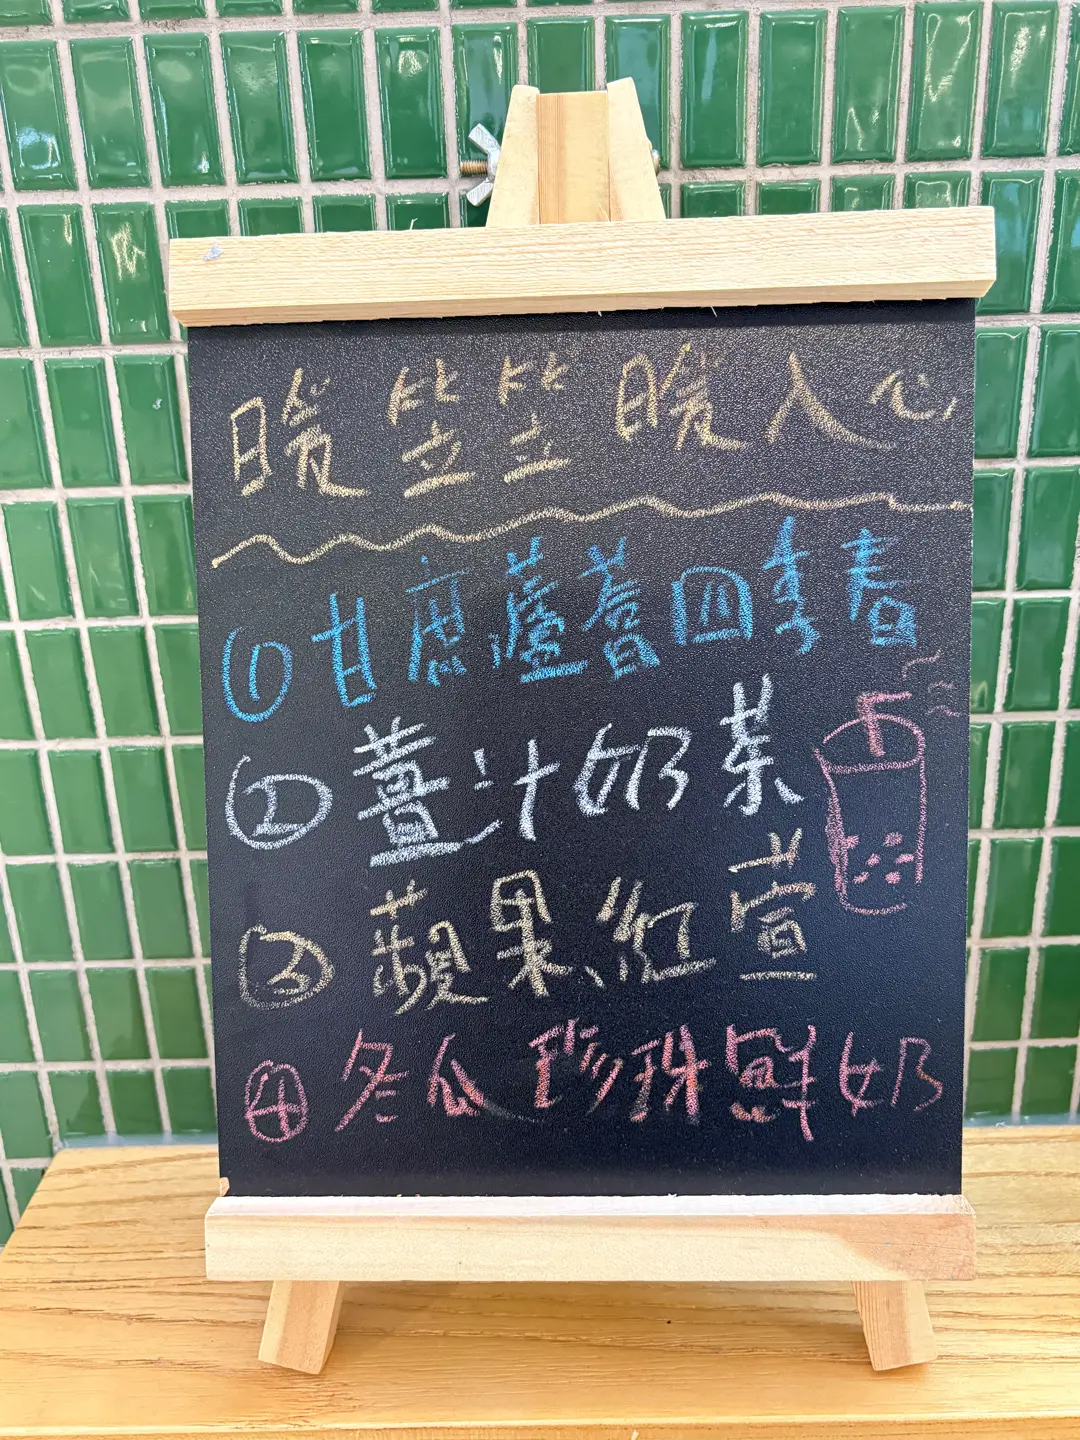 暖笠笠暖人心
①甘蔗蘆薈四季春
②薑汁奶茶
③蘋果紅萱
④冬瓜珍珠鮮奶